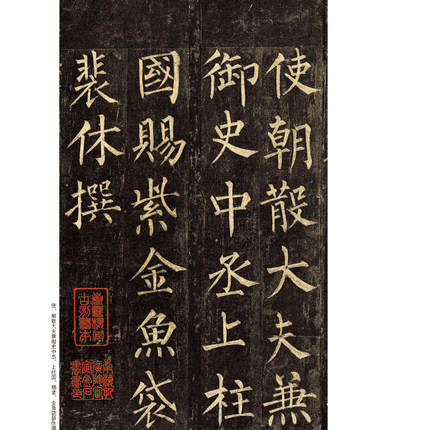 使朝散大夫兼
御史中丞上柱
國賜紫金魚袋
裴休撰
使、朝散大夫兼御史中丞、上柱国、赐紫、金鱼袋裴休撰